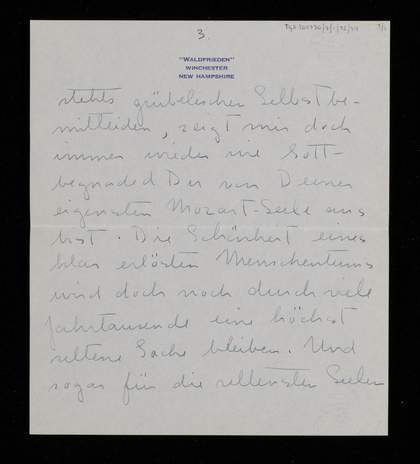 3.
"WALDFRIEDEN"
WINCHESTER
NEW HAMPSHIRE
stehts grübelischen Selbstbe-
mitleiden, zeigt mir doch
immer wieder wie Gott-
begnaded Du von Deiner
eigensten Mozart-Seele aus
bist. Die Schönheit eines
klar erlösten Menschentums
wird doch noch durch viele
Jahrtausende eine höchst
seltene Sache bleiben. Und
sogar für die seltensten Seelen